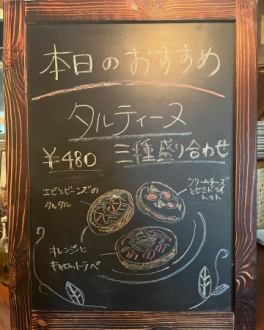 本日のおすすめ
タルティーヌ
¥480 三種盛り合わせ
エビとビーンズの
タルタル
クリームチーズ
とセミドライ
トマト
オレンジと
キャロットラペ